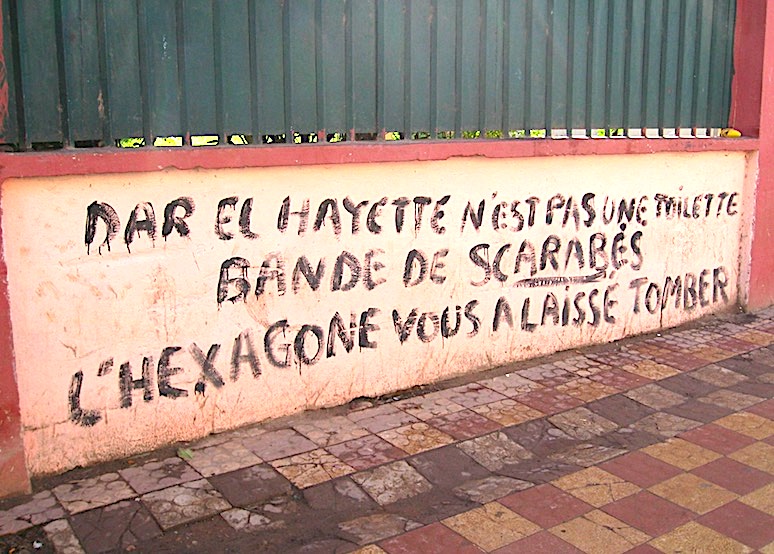 DAR EL HAYETTE N'EST PAS UNE TOILETTE
BANDE DE SCARABÈS
L'HEXAGONE VOUS A LAISSÉ TOMBER